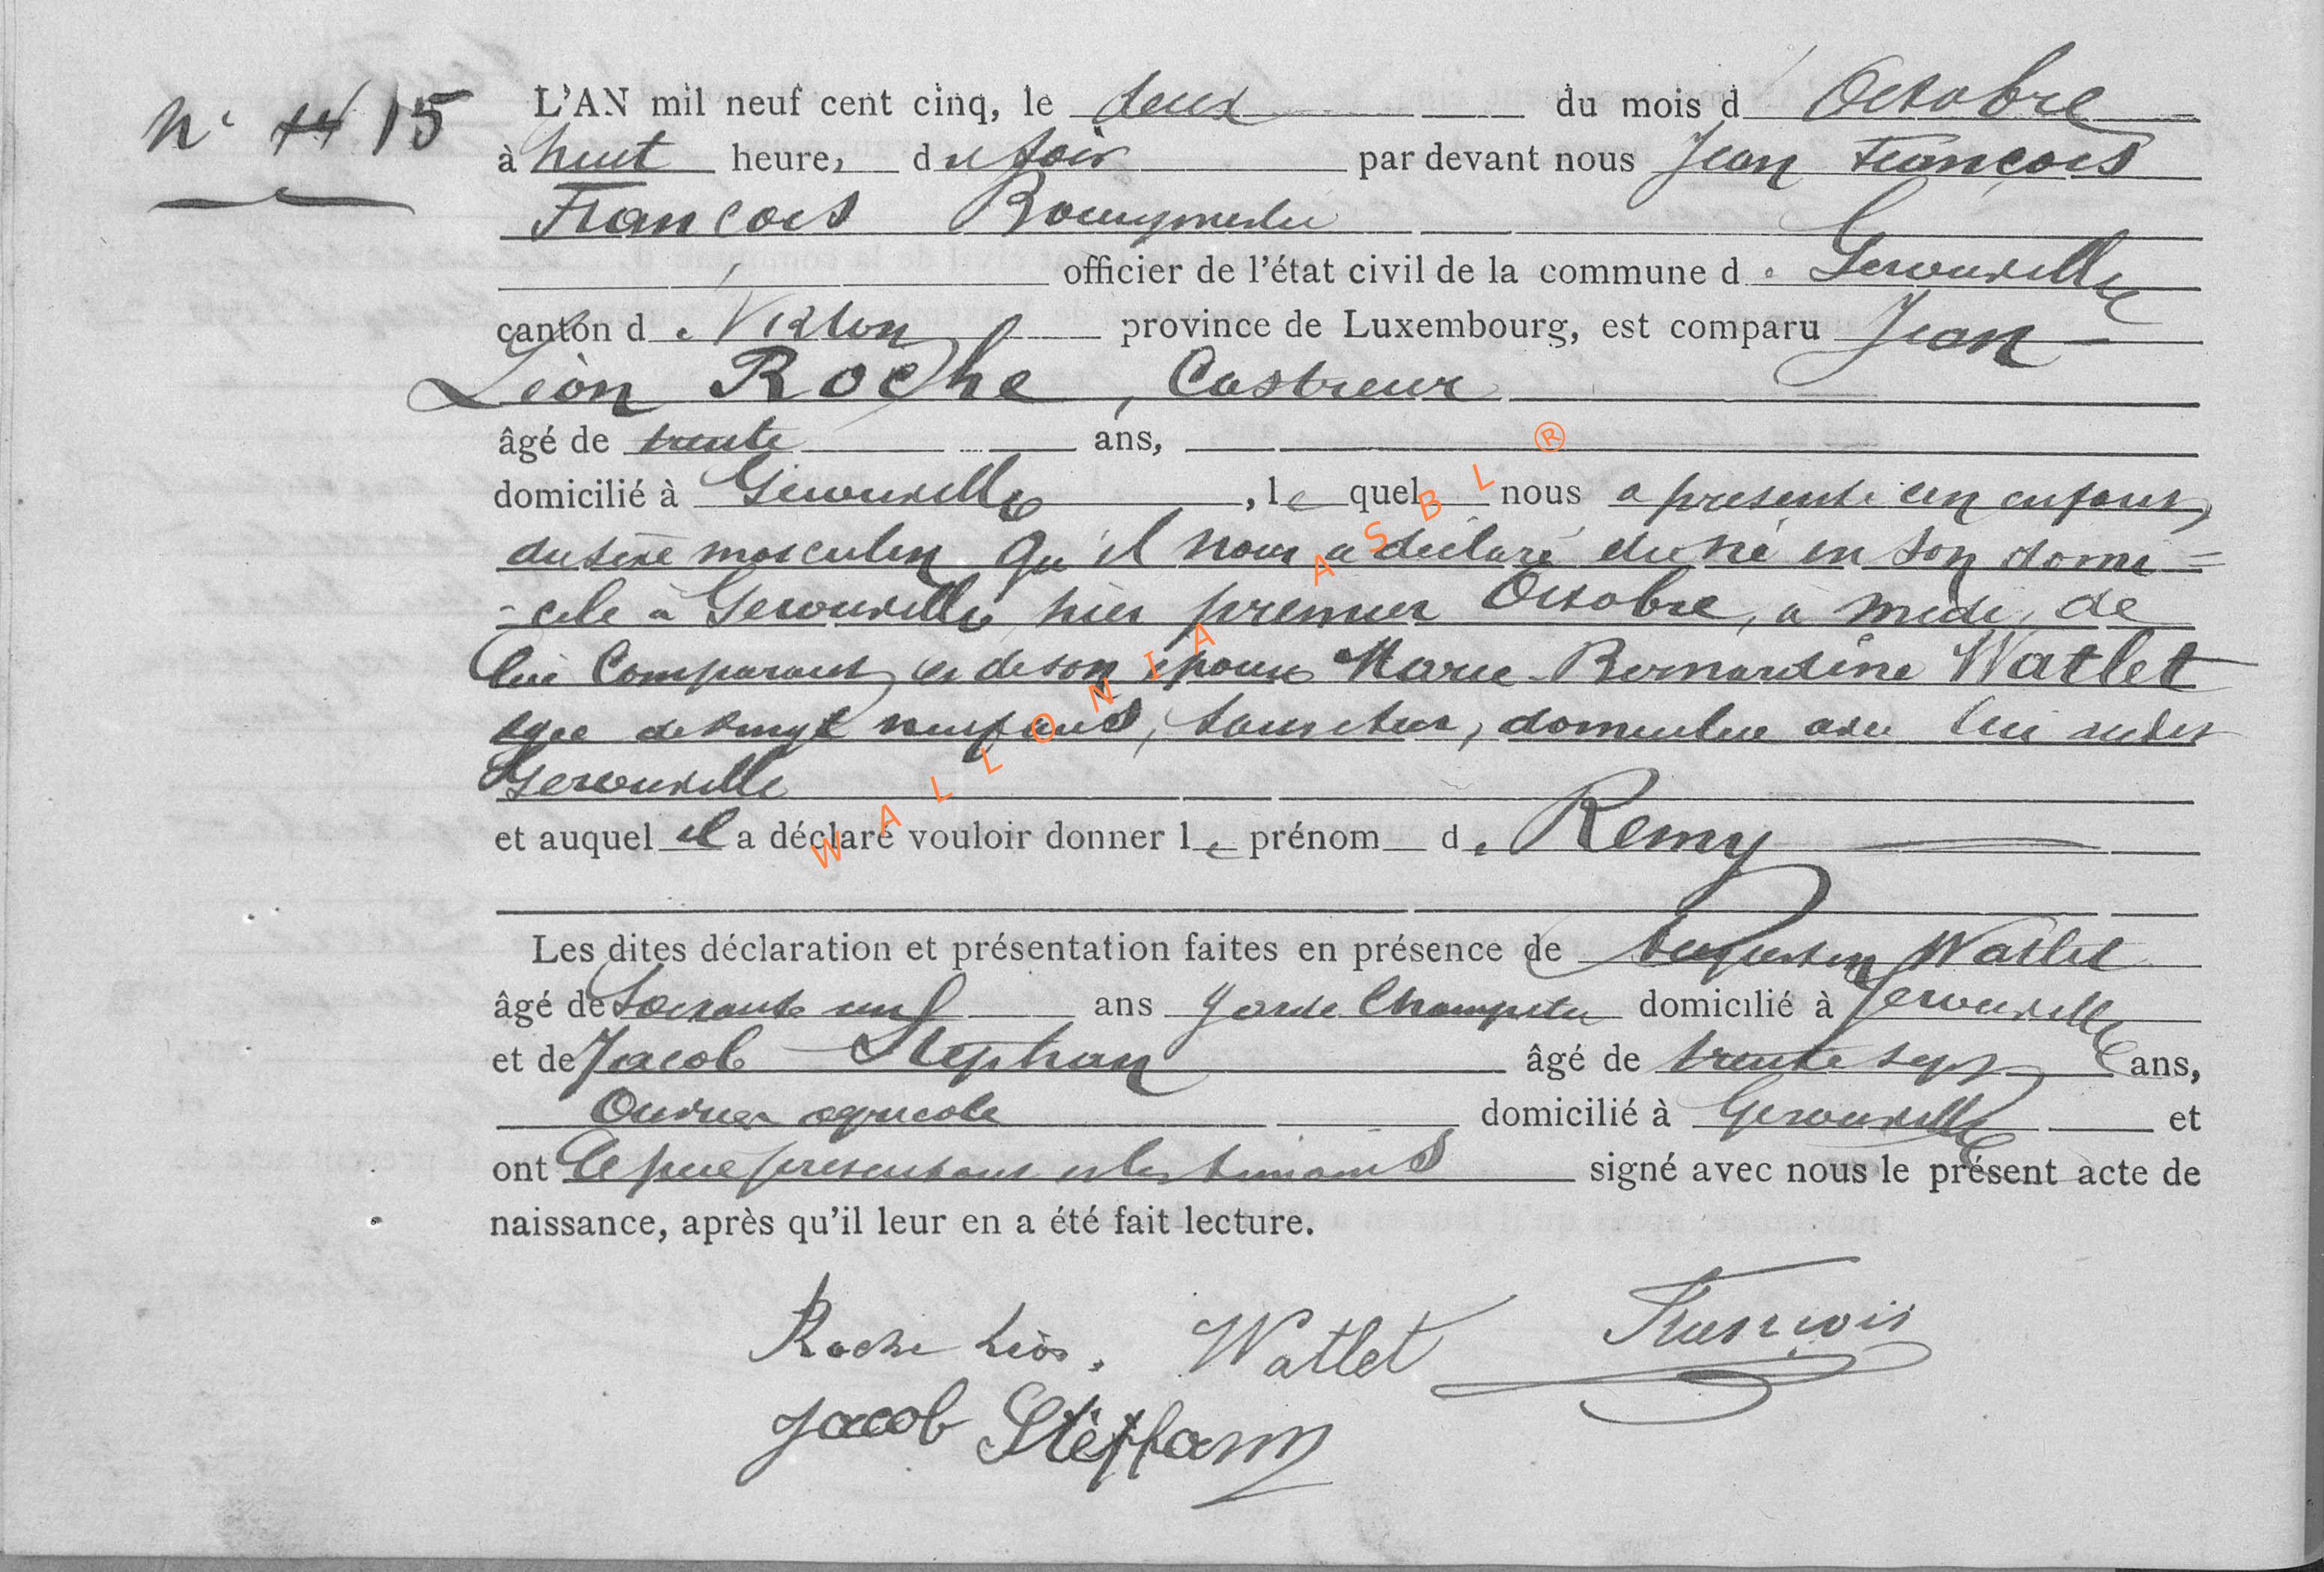 N° 14 15
L'AN mil neuf cent cinq, le deux du mois d Octobre
à huit heures du soir par devant nous Jean François
François Bourgmestre
officier de l'état civil de la commune de Gerouville
canton de Virton province de Luxembourg, est comparu Jean
Léon Roche, Castreur
âgé de trente ans,
domicilié à Gerouville, le quel nous a présenté un enfant,
du sexe masculin qu'il nous a déclaré être né en son domi=
-cile à Gerouville, hier premier Octobre, à midi, de
lui Comparant et de son épouse Marie Bernardine Watlet
agée de vingt neuf ans, domiciliée avec lui
Gerouville
et auquel il a déclaré vouloir donner le prénom de Remy
Les dites déclaration et présentation faites en présence de Augustin Watlet
âgé de Soixante ans garde Champêtre domicilié à Gerouville
et de Jacob Stephan âgé de trente sept ans,
Ouvrier agricole domicilié à Gerouville et
ont le père présentant et les témoins signé avec nous le présent acte de
naissance, après qu'il leur en a été fait lecture.
Roche Léon. Watlet François
Jacob Stéffann
WALLONIA ASBL ®